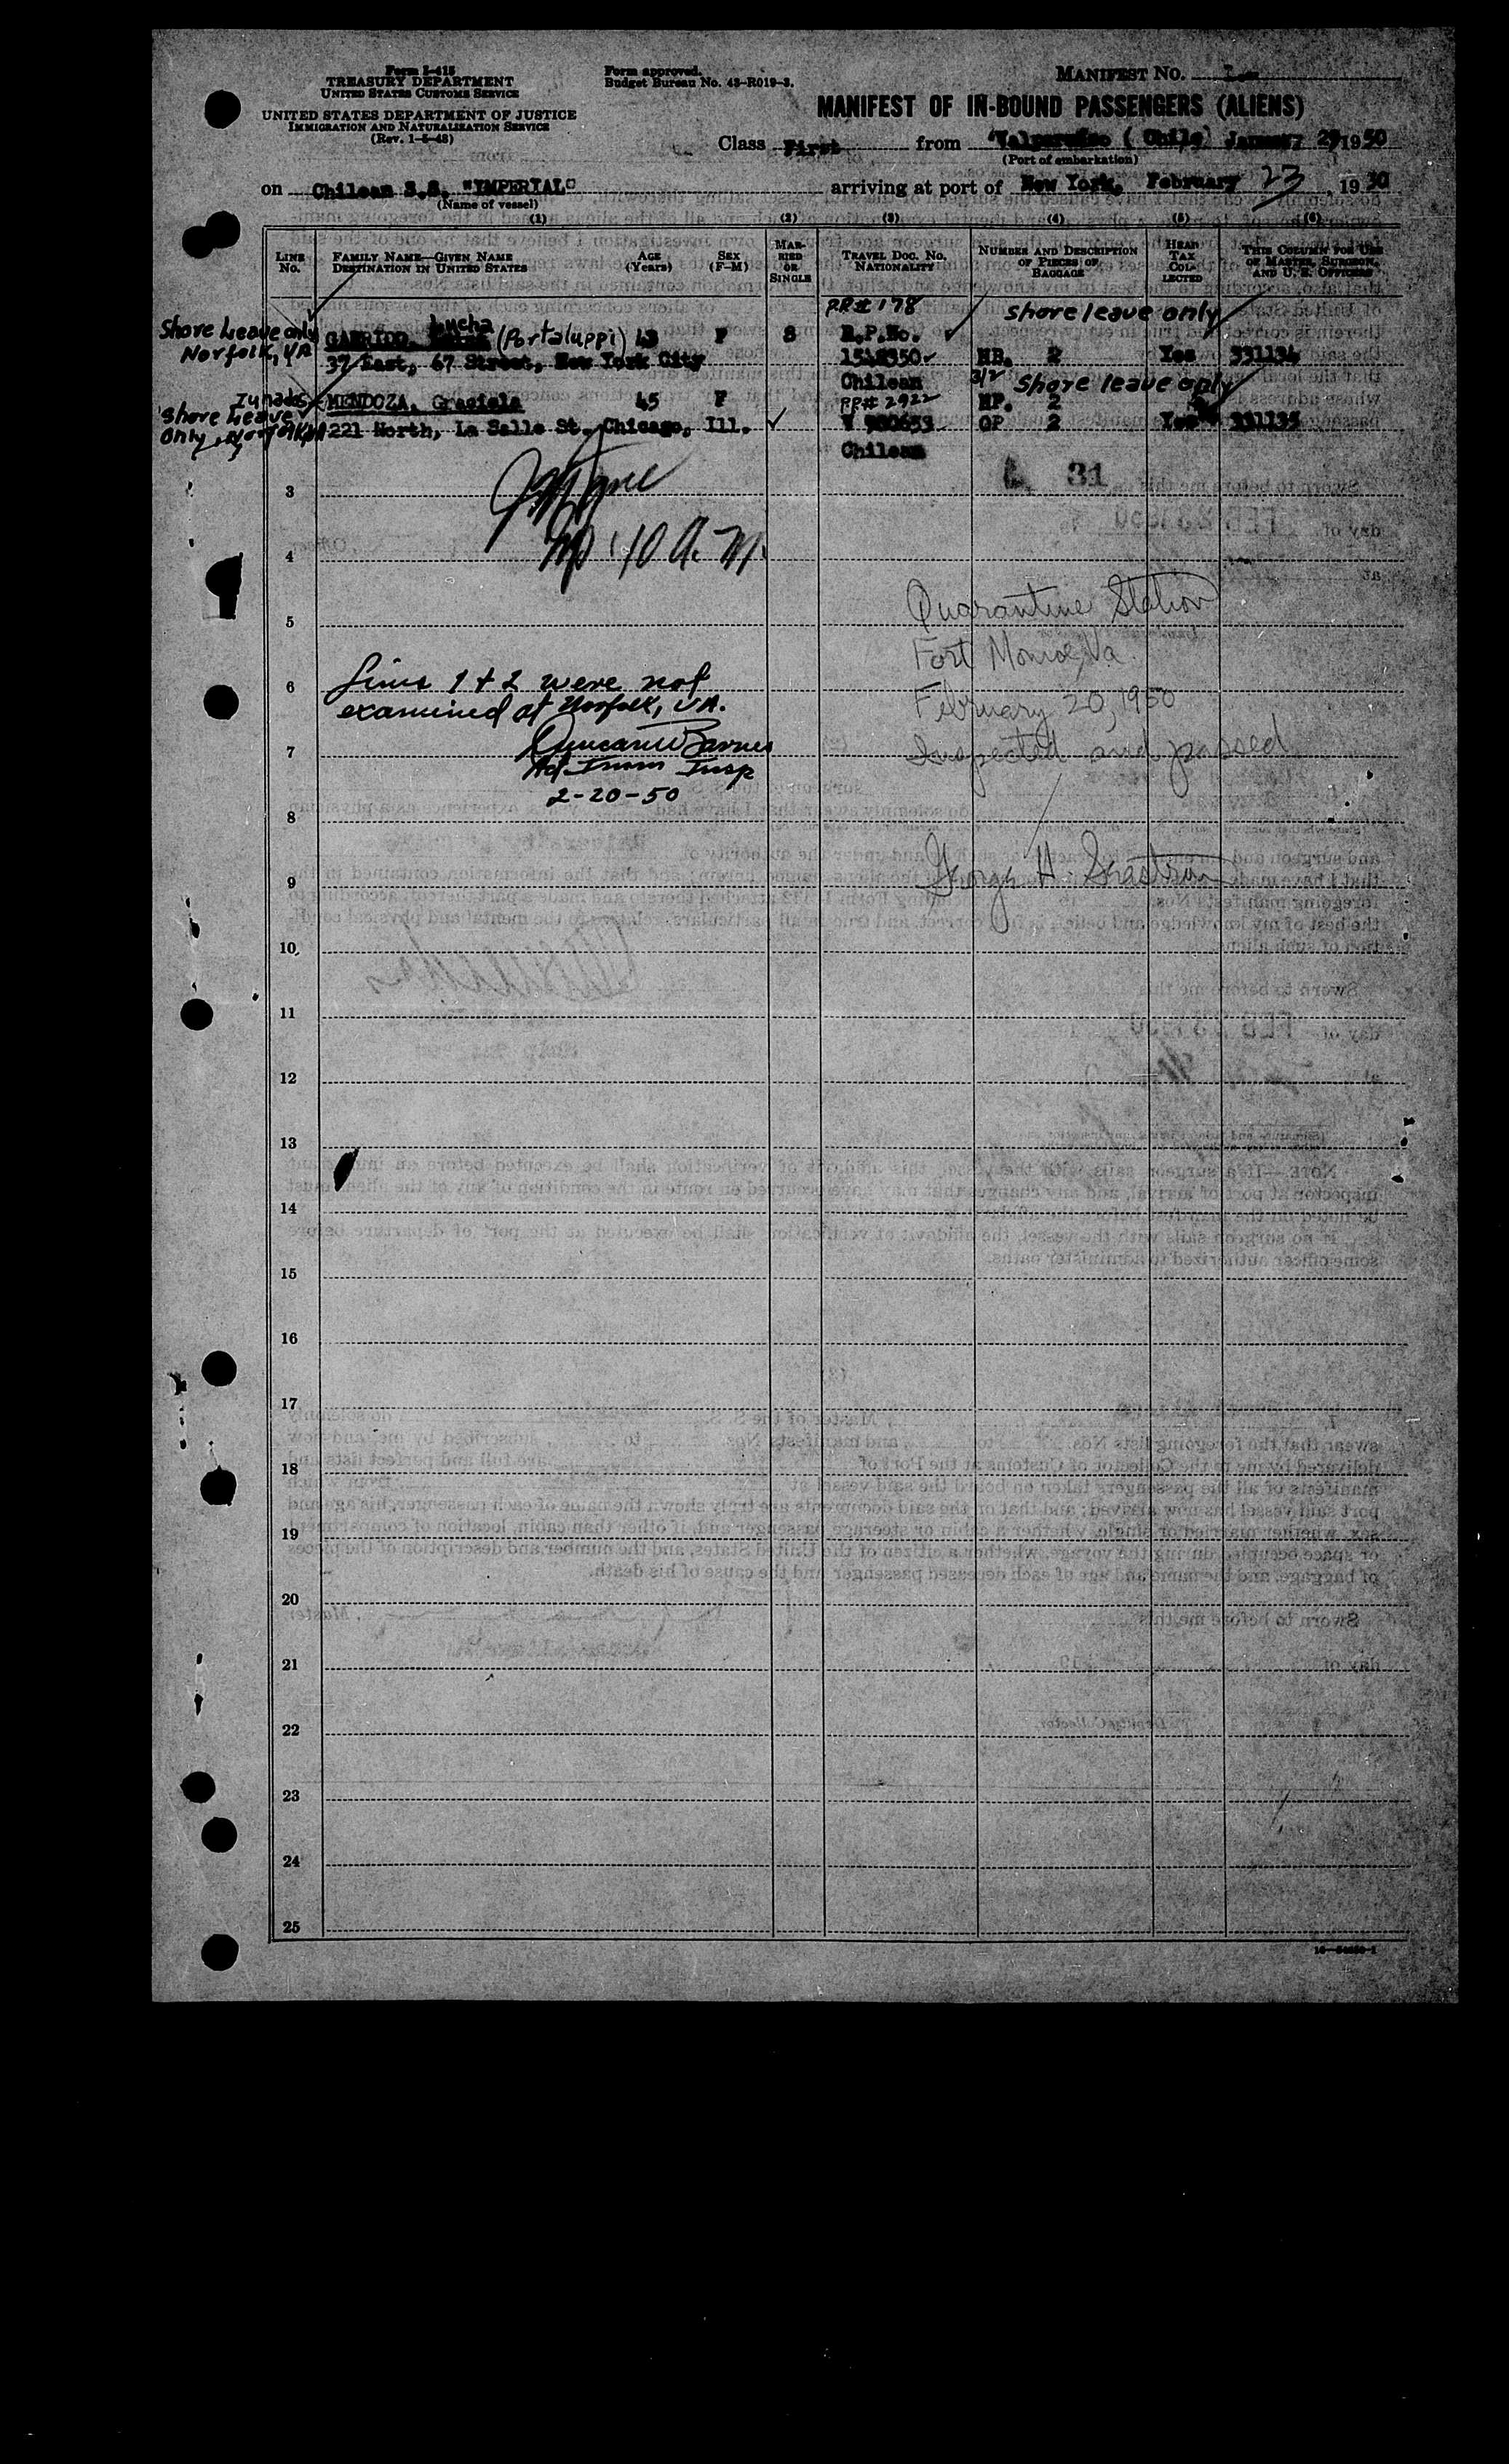 Form I-415
TREASURY DEPARTMENT
UNITED STATES CUSTOMS SERVICE
UNITED STATES DEPARTMENT OF JUSTICE
IMMIGRATION AND NATURALIZATION SERVICE
(Rev. 1-5-48)
Form approved.
Budget Bureau No. 43-R019-3.
MANIFEST NO.
MANIFEST OF IN-BOUND PASSENGERS (ALIENS)
Class First from Valparaiso ( Chile) January 29 1950
(Port of embarkation)
on Chilean S.S. "IMPERIAL" arriving at port of New York, February 23, 1950
(Name of vessel)
(1) (2) (3) (4) (5) (6)
LINE No.
FAMILY NAME—GIVEN NAME
DESTINATION IN UNITED STATES
AGE (Years)
SEX (F-M)
MARRIED OR SINGLE
TRAVEL DOC. NO. NATIONALITY
NUMBER AND DESCRIPTION OF PIECES OF BAGGAGE
HEAD TAX COLLECTED
THIS COLUMN FOR USE OF MASTER, SURGEON, AND U. S. OFFICERS
PP# 178
Shore Leave only Norfolk, VA
GARRIDO, (Portaluppi) 43 F S R.P.No. shore leave only
37 East, 67 Street, New York City 1548350 HB. 2 Yes 331134
Chilean 3/2 Shore leave only
MENDOZA, Graciela 45 F PP# 2922 HP. 2
Shore Leave only, Norfolk VA
221 North, La Salle St. Chicago, Ill. V 900653 OP 2 Yes 331135
Chilean
31
3
10 A.M.
4
Quarantine Station
5
Fort Monroe, Va.
Lines 1 + 2 were not
6
examined at Norfolk, VA.
February 20, 1950
Duncan W Barnes
7
Inspected and passed
Act Imm Insp
2-20-50
8
George H.
9
10
11
12
13
14
15
16
17
18
19
20
21
22
23
24
25